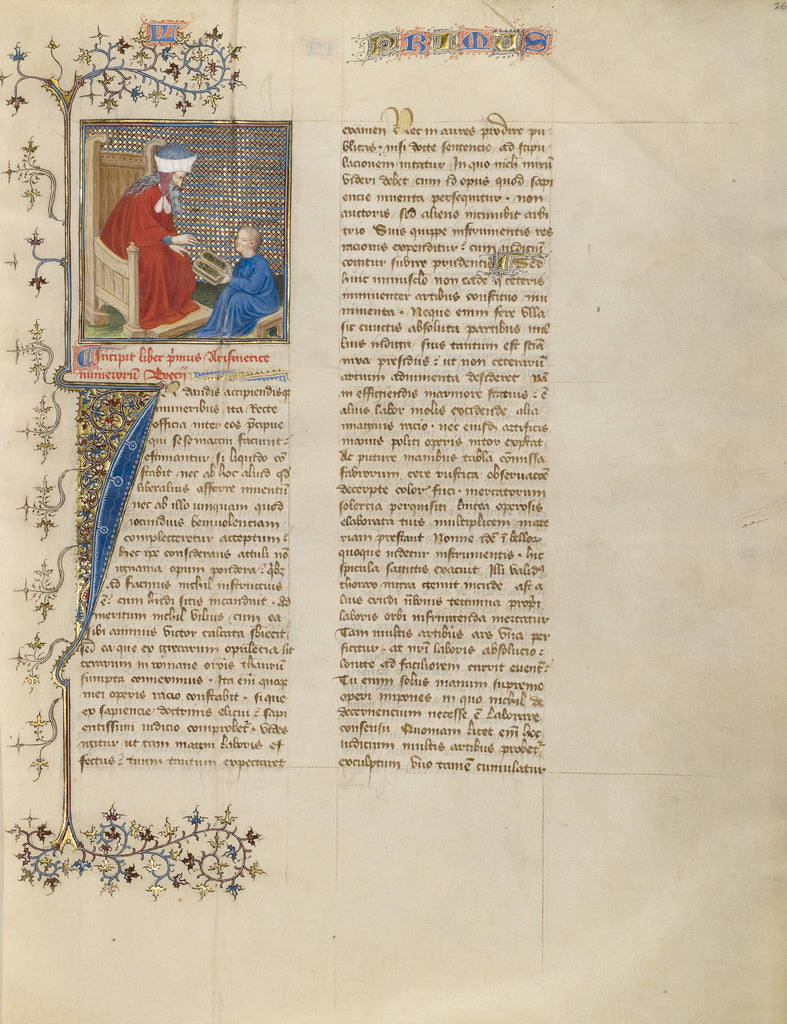 26
L PRIMUS
Incipit liber p̄mus Arismetice
numerorū Boecii
In dandis accipiendisq̄
muneribus ita Recte
officia inter eos p̄cipue
qui sese magni faciunt
estimantur si liquido cō
stabit nec ab hoc aliud qd
liberalius afferre inventū
nec ab illo unquam quod
iocundius benivolenciam
complecteretur acceptum
hec ipe considerans attuli nō
ignavia opum pondera
Ad facinus nichil instructius
ē cum hn̄di sitis incanduit Ad
meritum nichil vilius cum ea
sibi animus victor calcata
Sed ea que ex grecarum opulētia lit
terarum in romane orōis thaurū
sumpta convexiimus Ita enī quoq̄
mei operis racio constabit si que
ex sapiencie doctrinis elicui sapi
entissimi iudicio comprobet Vides
igitur ut tam magni laboris ef
fectus tuum tantum expectaret
examen Nec in aures prodire pu
blicas nisi docte sentencie ad stipu
lacionem nitatur In quo nichil mirū
videri debet cum id opus quod sapi
encie inventa persequitur non
auctoris sed alieno incumbit arbi
trio Suis quippe instrumentis res
racionis expenditur cum iudiciū
cogitur subire prudentis Sed
huic munusclo non eadē q̄ ceteris
imminenter artibus constituo mu
nimenta Neque enim fere ulla
sic cunctis absoluta partibus nul
lius indiga suis tantum est sciā
nixa presidiis ut non ceterarum
artium adiumenta desideret Nā
in effigiendis marmore statuis ē
alius labor molis excidende alia
imaginis racio nec eiusdē artificis
manus politi operis nitor expectat
At picture manibus tabla cōmissa
fabrorum cere rustica observacōe
decerpte color fuci mercatorum
solercia perquisiti lintea operosis
elaborata telis multiplicem mate
riam prestant Nonne idē ī bellorū
quoque videtur instrumentis hic
spicula sagittis exacuit Illi validꝰ
thorax nigra gemit incude ast a
lius crudi umbonis tegmina propri
laboris orbi infringenda mercatur
Tam multis artibus ars una per
ficitur at nr̄i laboris absolucio
longe ad faciliorem currit eventū
Tu enim solus manum supremo
operi impones in quo nichil de
decernencium necesse ē laborare
consensu Quoniam licet enī hoc
iudicium multis artibus probetꝰ
excultum uno tamē cumulatur